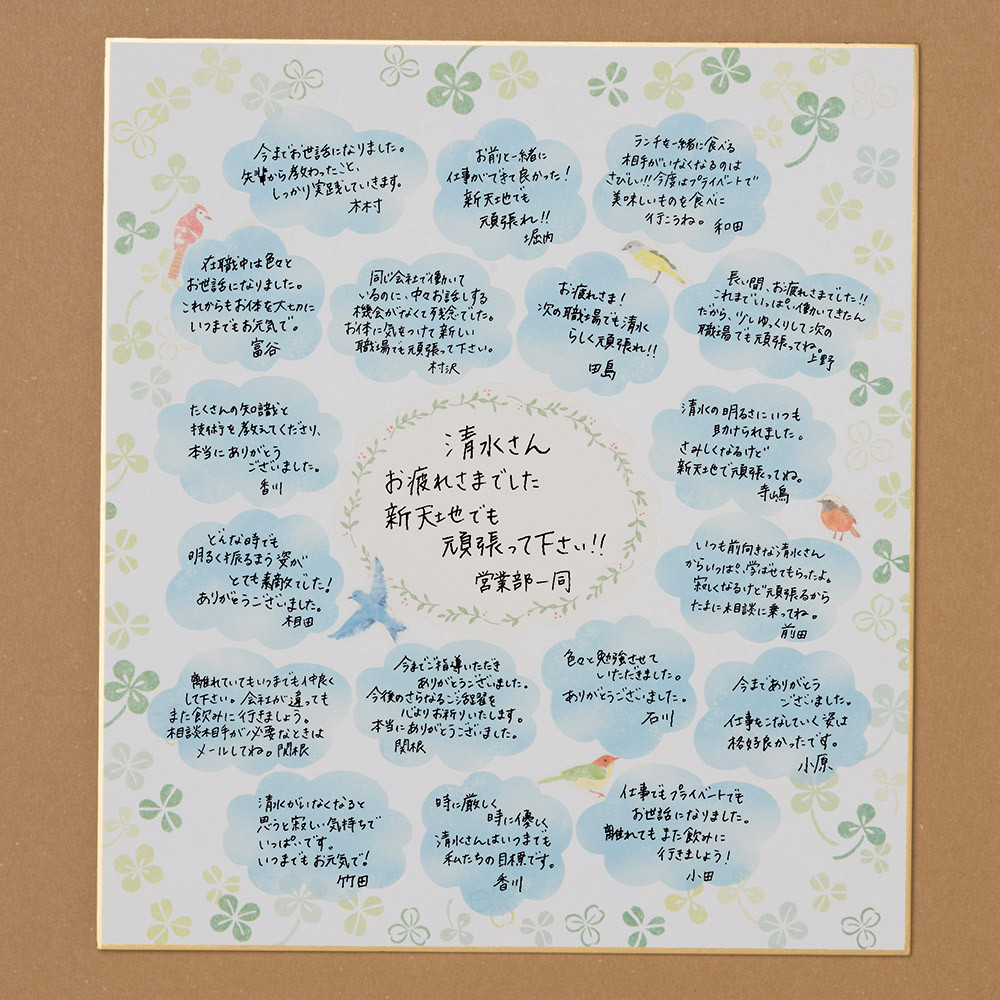 今までお世話になりました。
先輩から教わったこと、
しっかり実践していきます。
木村
お前と一緒に
仕事ができて良かった！
新天地でも
頑張れ!!
堀内
ランチを一緒に食べる
相手がいなくなるのは
さびしい!!今度はプライベートで
美味しいものを食べに
行こうね。 和田
在職中は色々と
お世話になりました。
これからもお体を大切に
いつまでもお元気で。
富谷
同じ会社で働いて
いるのに、中々お話しする
機会がなくて残念でした。
お体に気をつけて新しい
職場でも頑張って下さい。
村沢
お疲れさま！
次の職場でも清水
らしく頑張れ!!
田島
長い間、お疲れさまでした!!
これまでいっぱい働いてきたん
だから、少しゆっくりして次の
職場でも頑張ってね。
上野
たくさんの知識と
技術を教えてくださり、
本当にありがとう
ございました。
香川
清水さん
お疲れさまでした
新天地でも
頑張って下さい!!
営業部一同
清水の明るさにいつも
助けられました。
さみしくなるけど
新天地で頑張ってね。
寺嶋
どんな時でも
明るく振るまう姿が
とても素敵でした！
ありがとうございました。
相田
いつも前向きな清水さん
からいっぱい学ばせてもらったよ。
寂しくなるけど頑張るから
たまに相談に乗ってね。
前田
離れていてもいつまでも仲良く
して下さい。会社が違っても
また飲みに行きましょう。
相談相手が必要なときは
メールしてね。関根
今までご指導いただき
ありがとうございました。
今後のさらなるご活躍を
心よりお祈りいたします。
本当にありがとうございました。
関根
色々と勉強させて
いただきました。
ありがとうございました。
石川
今までありがとう
ございました。
仕事をこなしていく姿は
格好良かったです。
小原
清水がいなくなると
思うと寂しい気持ちで
いっぱいです。
いつまでもお元気で！
竹田
時に厳しく
時に優しく
清水さんはいつまでも
私たちの目標です。
香川
仕事でもプライベートでも
お世話になりました。
離れてもまた飲みに
行きましょう！
小田